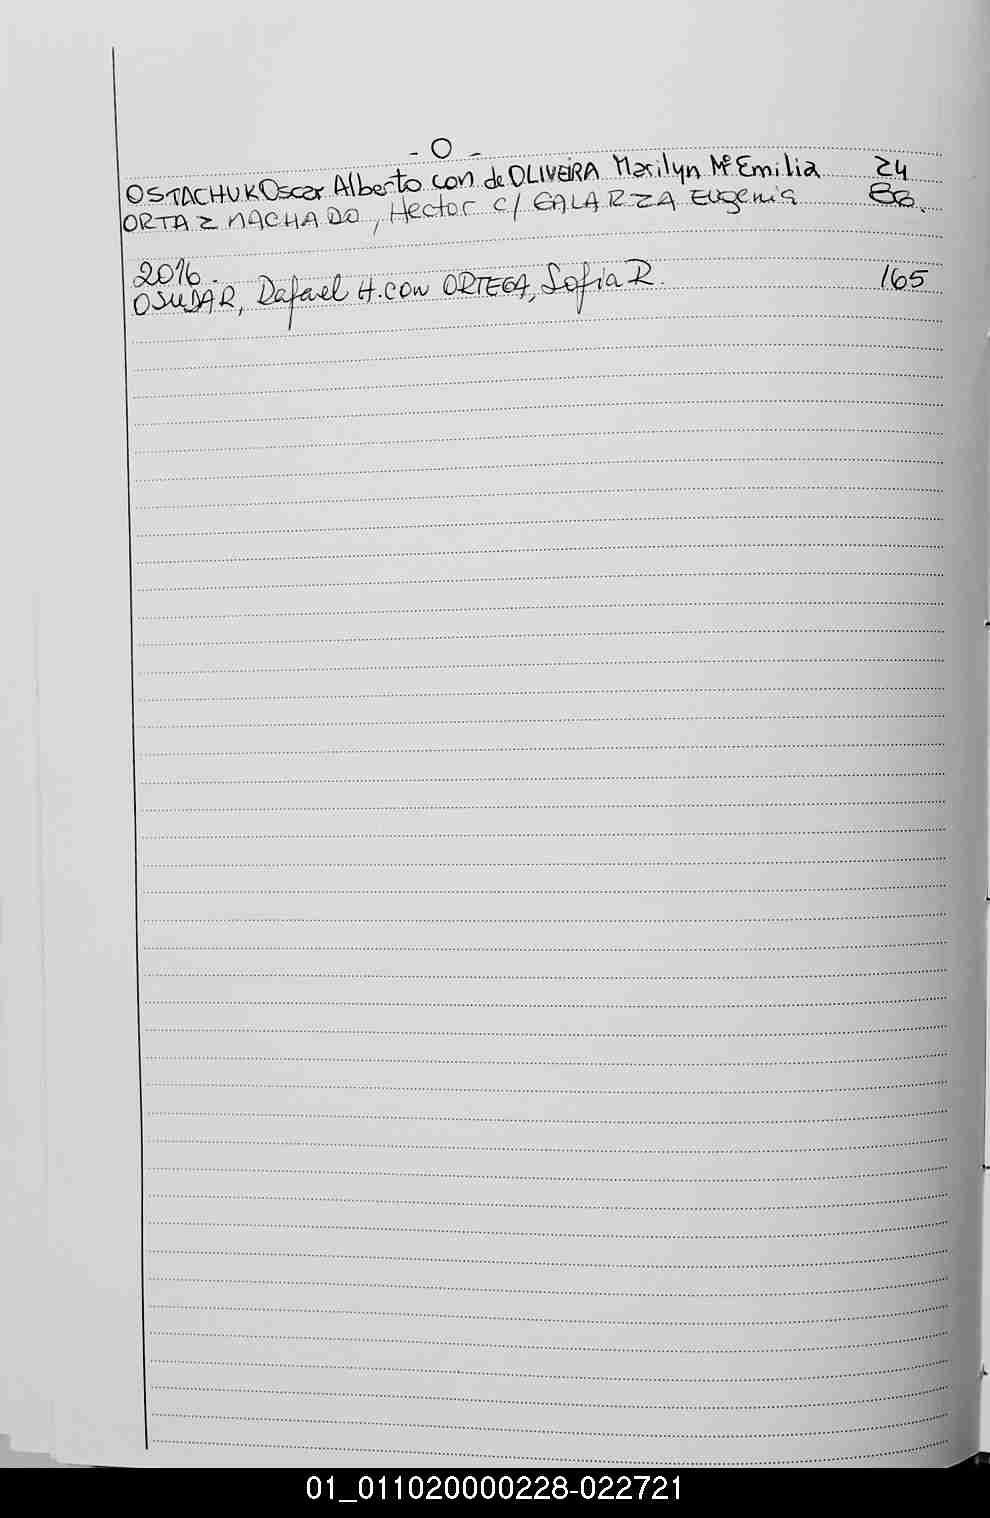 - O -
OSTACHUK Oscar Alberto con de OLIVEIRA Marilyn Mª Emilia 24
ORTAZ MACHADO, Hector c/ GALARZA Eugenia 86.
2016.-
OSUDAR, Rafael H. con ORTEGA, Sofia R. 165
01_011020000228-022721